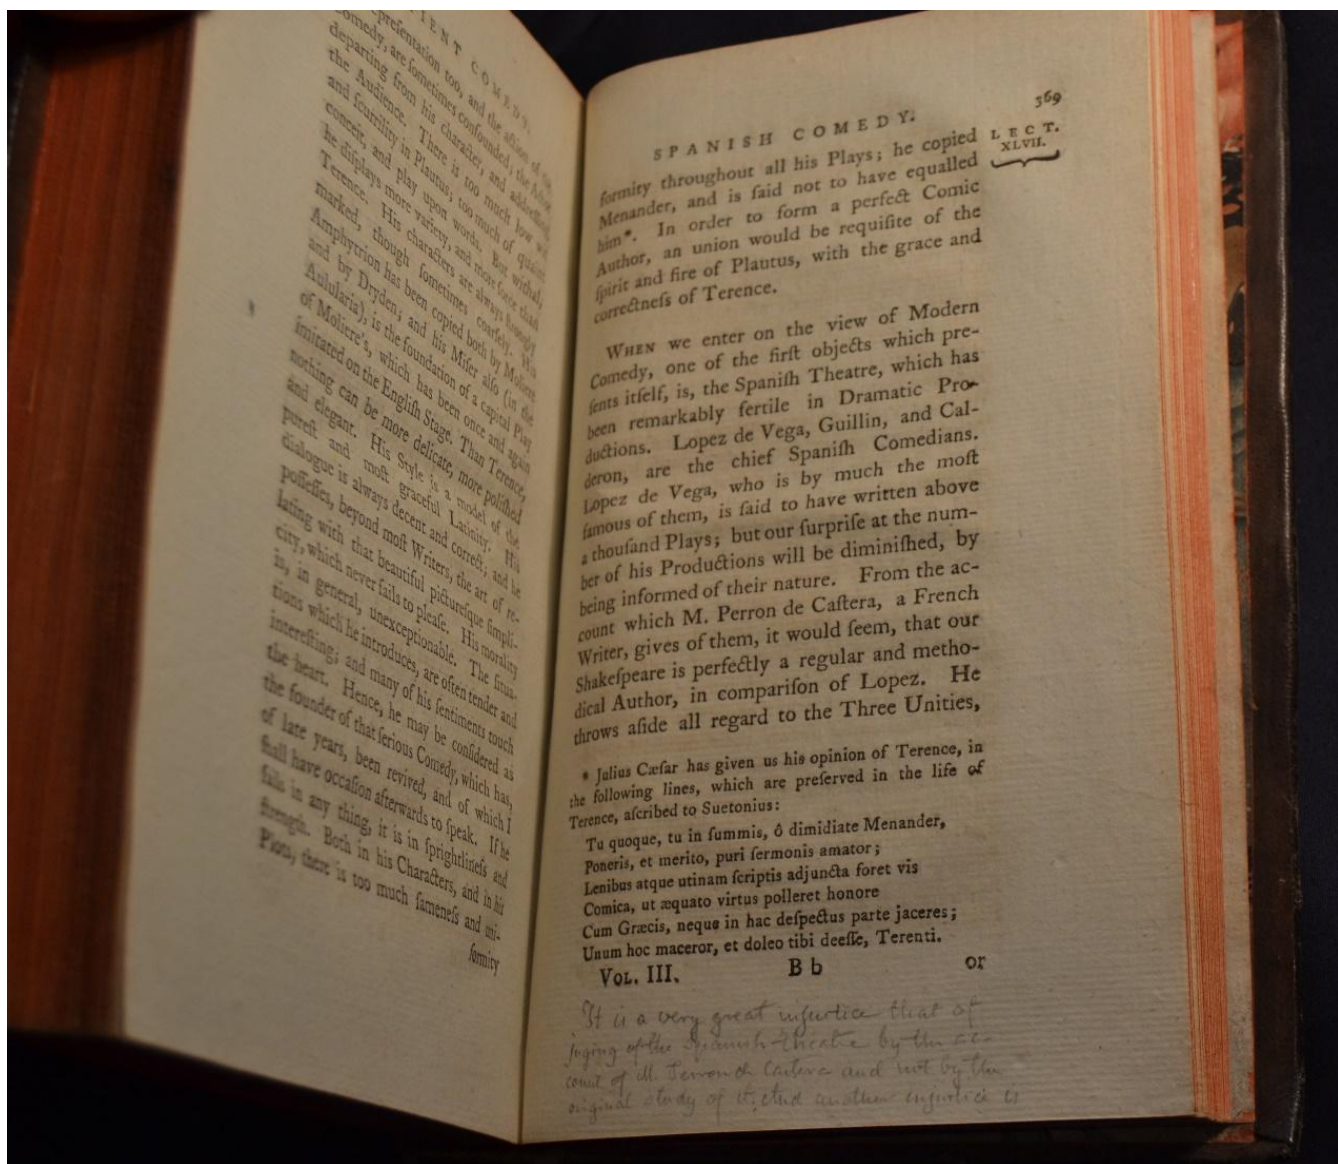 IENT COMEDY.
presentation too, and the action of the
Comedy, are ſometimes confounded, the Actor
departing from his character, and addreſſing
the Audience. There is too much low wit
and ſcurrility in Plautus; too much of quaint
conceit, and play upon words. But withal,
he diſplays more variety, and more force than
Terence. His characters are always ſtrongly
marked, though ſometimes coarſely. His
Amphytrion has been copied both by Moliere
and by Dryden; and his Miſer alſo (in the
Aulularia), is the foundation of a capital Play
of Moliere's, which has been once and again
imitated on the Engliſh Stage. Than Terence,
nothing can be more delicate, more poliſhed
and elegant. His Style is a model of the
pureſt and moſt graceful Latinity. His
dialogue is always decent and correct; and he
poſſeſſes, beyond moſt Writers, the art of re-
lating with that beautiful pictureſque ſimpli-
city, which never fails to pleaſe. His morality
is, in general, unexceptionable. The ſitua-
tions which he introduces, are often tender and
intereſting; and many of his ſentiments touch
the heart. Hence, he may be conſidered as
the founder of that ſerious Comedy, which has,
of late years, been revived, and of which I
ſhall have occaſion afterwards to ſpeak. If he
fails in any thing, it is in ſprightlineſs and
ſtrength. Both in his Characters, and in his
Plots, there is too much ſameneſs and uni-
formity
SPANISH COMEDY. 369
LECT.
XLVII.
formity throughout all his Plays; he copied
Menander, and is ſaid not to have equalled
him*. In order to form a perfect Comic
Author, an union would be requiſite of the
ſpirit and fire of Plautus, with the grace and
correctneſs of Terence.
WHEN we enter on the view of Modern
Comedy, one of the firſt objects which pre-
ſents itſelf, is, the Spaniſh Theatre, which has
been remarkably fertile in Dramatic Pro-
ductions. Lopez de Vega, Guillin, and Cal-
deron, are the chief Spaniſh Comedians.
Lopez de Vega, who is by much the moſt
famous of them, is ſaid to have written above
a thouſand Plays; but our ſurpriſe at the num-
ber of his Productions will be diminiſhed, by
being informed of their nature. From the ac-
count which M. Perron de Caſtera, a French
Writer, gives of them, it would ſeem, that our
Shakeſpeare is perfectly a regular and metho-
dical Author, in compariſon of Lopez. He
throws aſide all regard to the Three Unities,
* Julius Cæſar has given us his opinion of Terence, in
the following lines, which are preſerved in the life of
Terence, aſcribed to Suetonius:
Tu quoque, tu in ſummis, ô dimidiate Menander,
Poneris, et merito, puri ſermonis amator;
Lenibus atque utinam ſcriptis adjuncta foret vis
Comica, ut æquato virtus polleret honore
Cum Græcis, neque in hac deſpectus parte jaceres;
Unum hoc maceror, et doleo tibi deeſſe, Terenti.
VOL. III. B b or
It is a very great injustice that of
juging of the Spanish theatre by the ac-
count of M. Perron de Castera and not by the
original study of it, And another injustice is